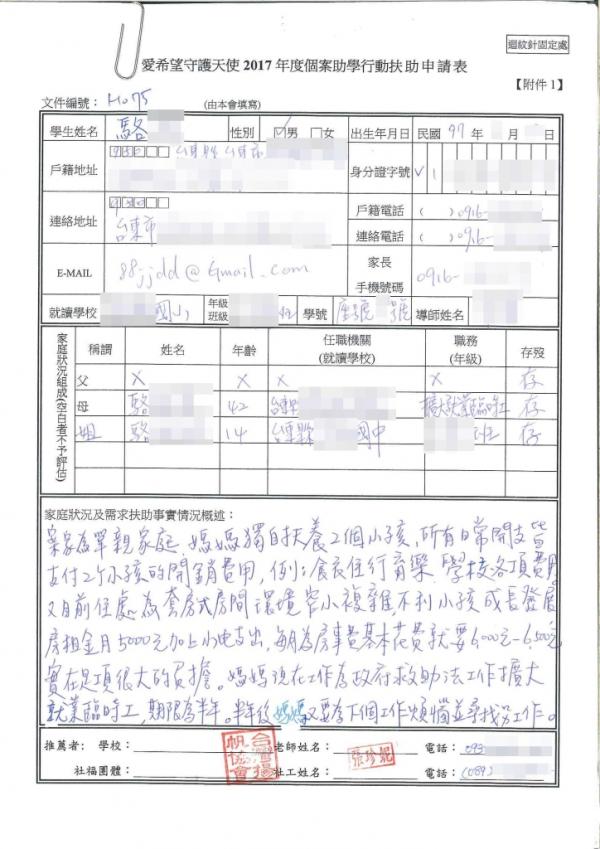 迴紋針固定處
愛希望守護天使 2017 年度個案助學行動扶助申請表
【附件 1】
文件編號：H075 (由本會填寫)
學生姓名 駱 性別 ☑男 □女 出生年月日 民國 97 年
戶籍地址 950 台東縣台東市 身分證字號 V 1
聯絡地址 950 台東市 戶籍電話 ( )0916-
聯絡電話 ( )0916-
E-MAIL 88jjdd@Gmail.com 家長手機號碼 0916-
就讀學校 國小 年級班級 班 學號 座號 號 導師姓名
家庭狀況組成(空白者不予評估)
稱謂 姓名 年齡 任職機關(就讀學校) 職務(年級) 存歿
父 X X X X 存
母 駱 42 台東縣 擴大就業臨時工 存
姐 駱 14 台東縣 國中 班 存
家庭狀況及需求扶助事實情況概述：
案家為單親家庭，媽媽獨自扶養2個小孩，所有日常開支皆
支付2個小孩的開銷費用，例：食衣住行育樂、學校各項費用，
又目前住處為套房式房間環境窄小複雜不利小孩成長發展
房租金月5000元加上水电支出，每月為房事費基本花費就要6,000元-6,500元
實在是項很大的負擔。媽媽現在工作為政府救助法工作擴大
就業臨時工，期限為半年。半年後媽媽又要為下個工作煩惱並尋找另工作。
推薦者: 學校： 老師姓名： 電話：093
社福團體： 社工姓名： 張珍妮 電話：(089)